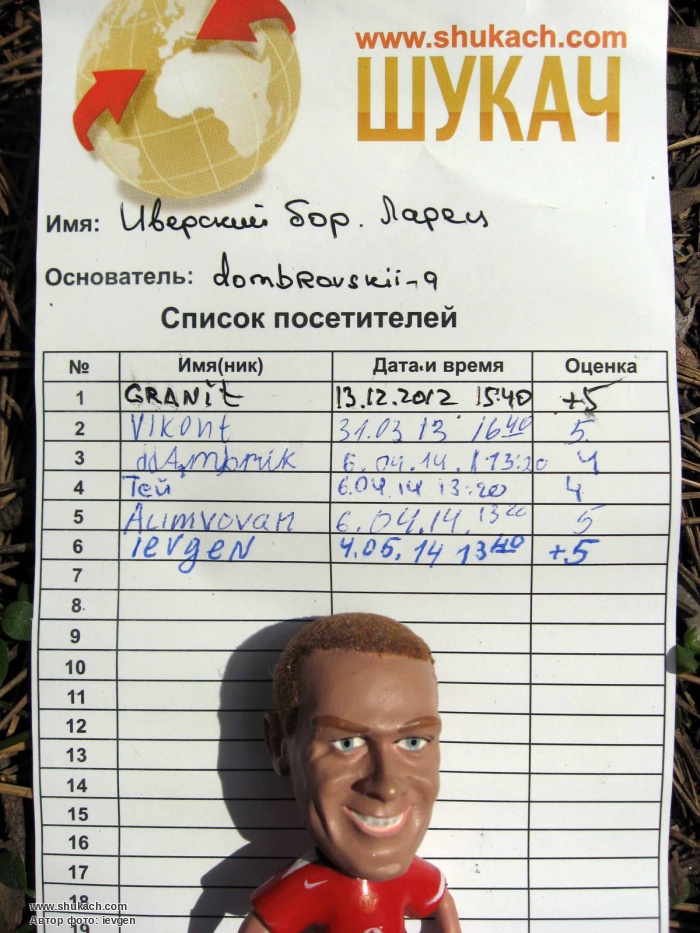 www.shukach.com
ШУКАЧ
Имя: Иверский бор. Ларец
Основатель: dombrovskii-a
Список посетителей
№ Имя(ник) Дата и время Оценка
1 GRANit 13.12.2012 15:40 +5
2 Vikont 31.03 13 16 40 5
3 6.04.14. 13:20 4
4 Тей 6.04.14 13:20 4
5 Alimvovan 6.04.14. 13 20 5
6 ievgen 4.05.14 13 40 +5
7
8
9
10
11
12
13
14
15
16
17
18
19
www.shukach.com
Автор фото: ievgen